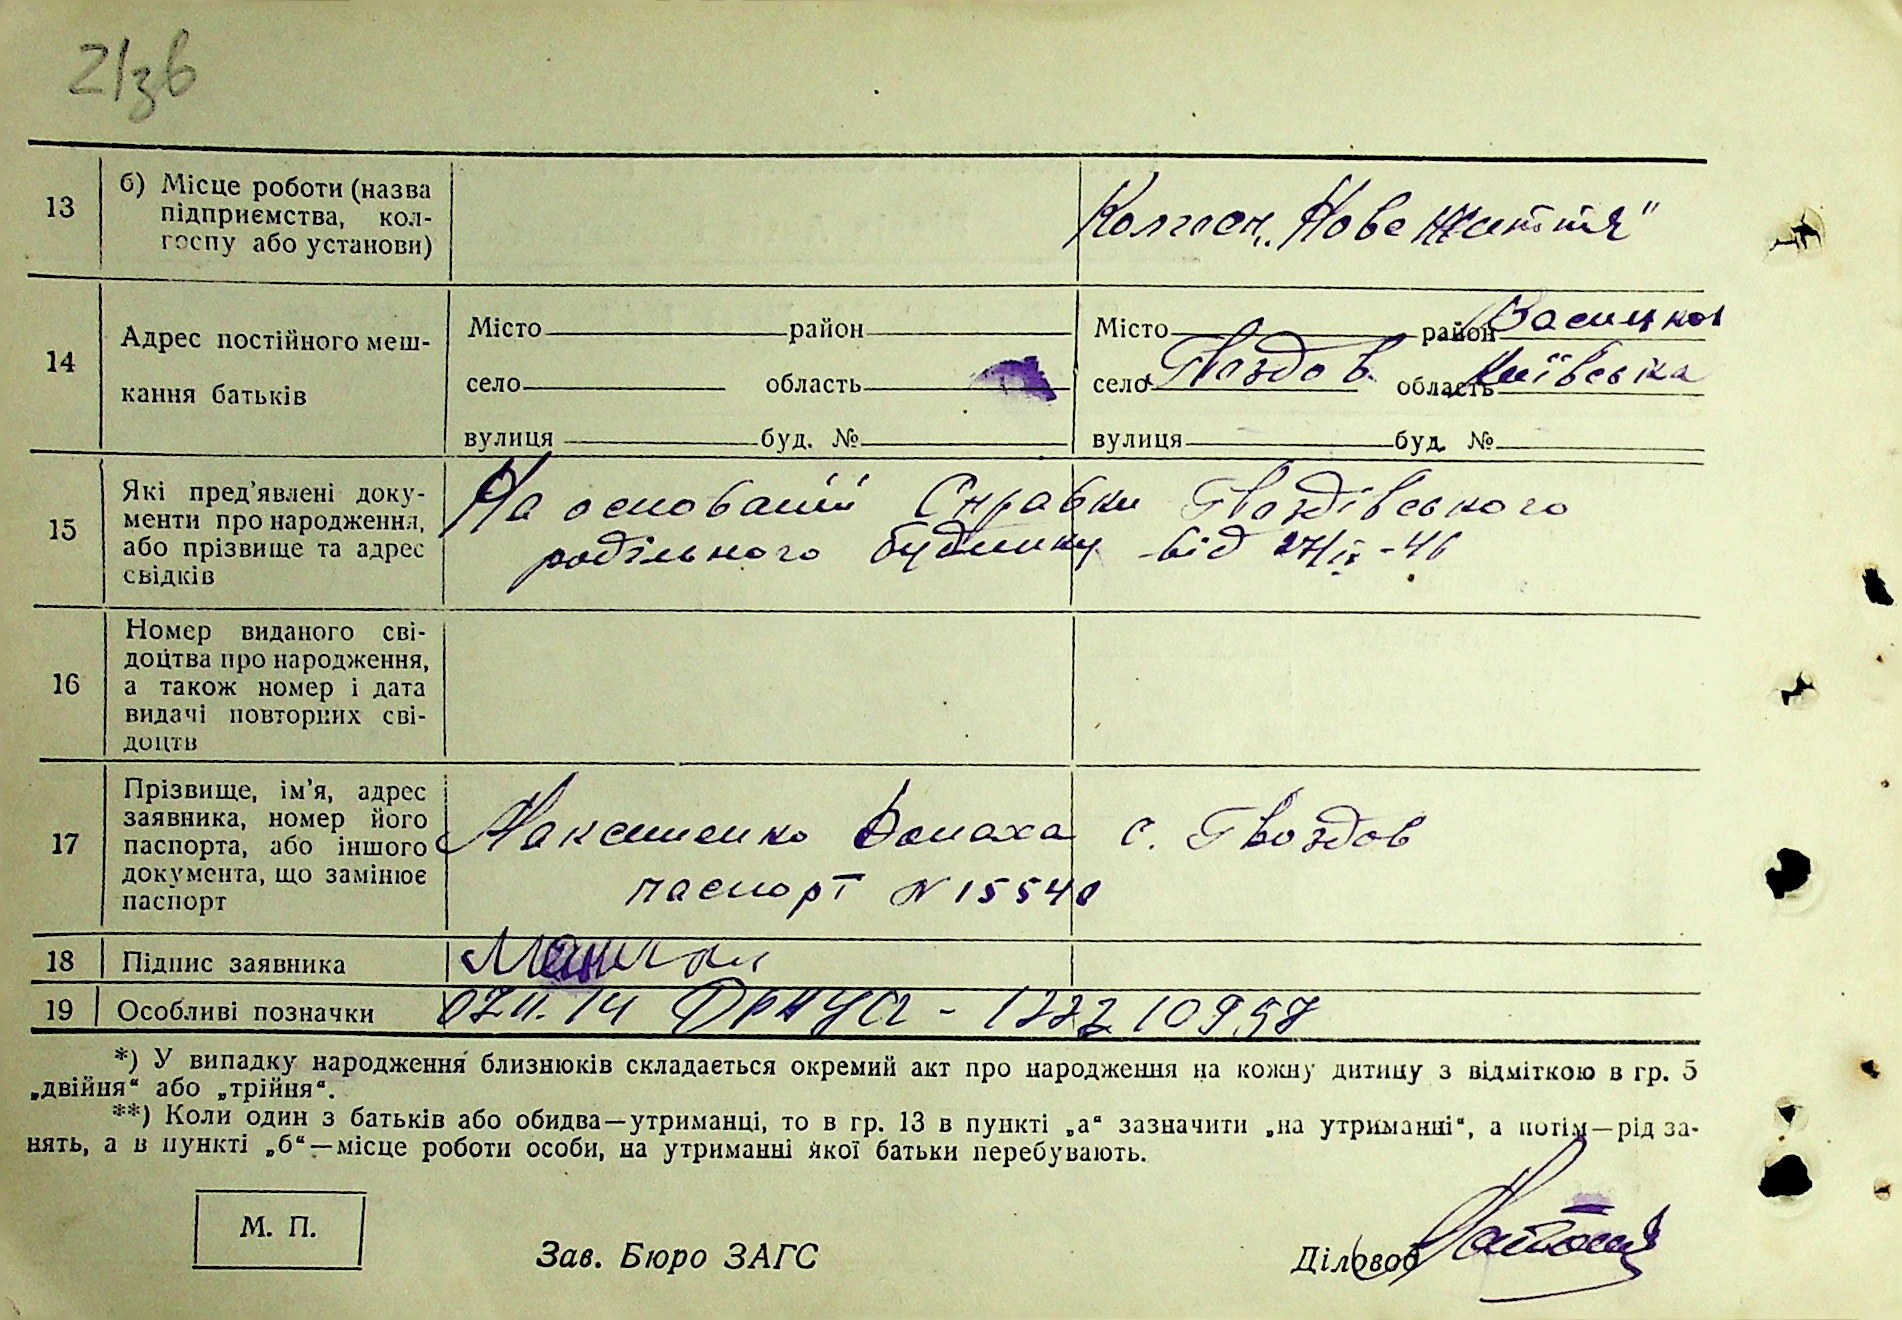 21зв
13 б) Місце роботи (назва
підприємства, кол-
госпу або установи)
Колгосп „Нове життя"
14 Адрес постійного меш-
кання батьків
Місто район Місто район Васильков
село область село Гвоздов область Київська
вулиця буд. № вулиця буд. №
15 Які пред'явлені доку-
менти про народження,
або прізвище та адрес
свідків
На основаніії Справки Гвоздівського
родільного будинку від 27/IX-46
16 Номер виданого сві-
доцтва про народження,
а також номер і дата
видачі повторних сві-
доцтв
17 Прізвище, ім'я, адрес
заявника, номер його
паспорта, або іншого
документа, що замінює
паспорт
Максименко Домаха с. Гвоздов
паспорт N 15540
18 Підпис заявника
19 Особливі позначки
*) У випадку народження близнюків складається окремий акт про народження на кожну дитину з відміткою в гр. 5
„двійня“ або „трійня“.
**) Коли один з батьків або обидва—утриманці, то в гр. 13 в пункті „а“ зазначити „на утриманні“, а потім—рід за-
нять, а в пункті „б“—місце роботи особи, на утриманні якої батьки перебувають.
М. П.
Зав. Бюро ЗАГС Діловод